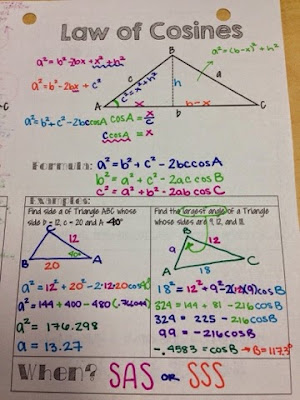 Law of Cosines
a² = b² - 2bx + x² + h²
a² = (b-x)² + h²
B
a² = b² - 2bx + c²
c² = x² + h²
h
a
A
x
b-x
C
b
a² = b² + c² - 2bc cosA
cosA = x/c
c cosA = x
Formula: a² = b² + c² - 2bc cosA
b² = a² + c² - 2ac cosB
c² = a² + b² - 2ab cosC
Examples:
Find side a of Triangle ABC whose
side b = 12, c = 20 and A = 40°
C
12
40°
B
20
A
a² = 12² + 20² - 2·12·20 cos40°
a² = 144 + 400 - 480 (.766044)
a² = 176.298
a = 13.27
Find the largest angle of a Triangle
whose sides are 9, 12, and 18.
B
12
9
C
A
18
18² = 12² + 9² - 2(12)(9) cosB
324 = 144 + 81 - 216 cosB
324 = 225 - 216 cosB
99 = -216 cosB
-.4583 = cosB → B = 117.3°
When? SAS or SSS